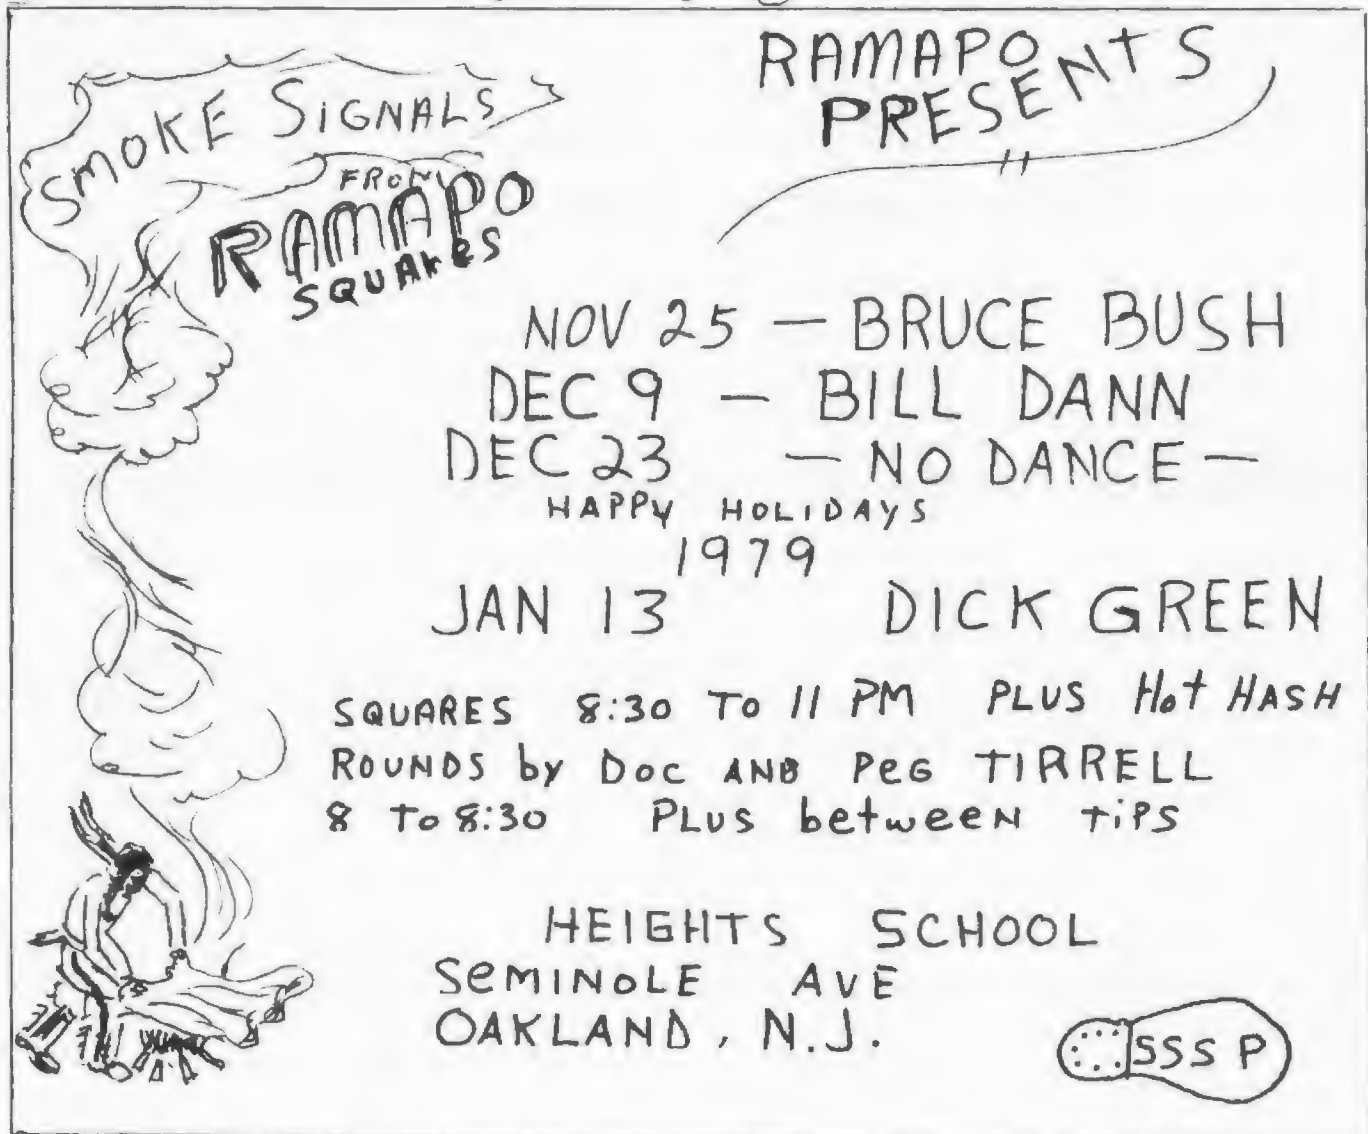 SMOKE SIGNALS
FROM
RAMAPO
SQUARES
RAMAPO
PRESENTS
NOV 25 — BRUCE BUSH
DEC 9 — BILL DANN
DEC 23 — NO DANCE —
HAPPY HOLIDAYS
1979
JAN 13 DICK GREEN
SQUARES 8:30 TO 11 PM PLUS Hot HASH
ROUNDS by DOC AND PeG TIRRELL
8 TO 8:30 PLUS betweeN TiPS
HEIGHTS SCHOOL
SeMINOLE AVE
OAKLAND, N.J.
SSS P